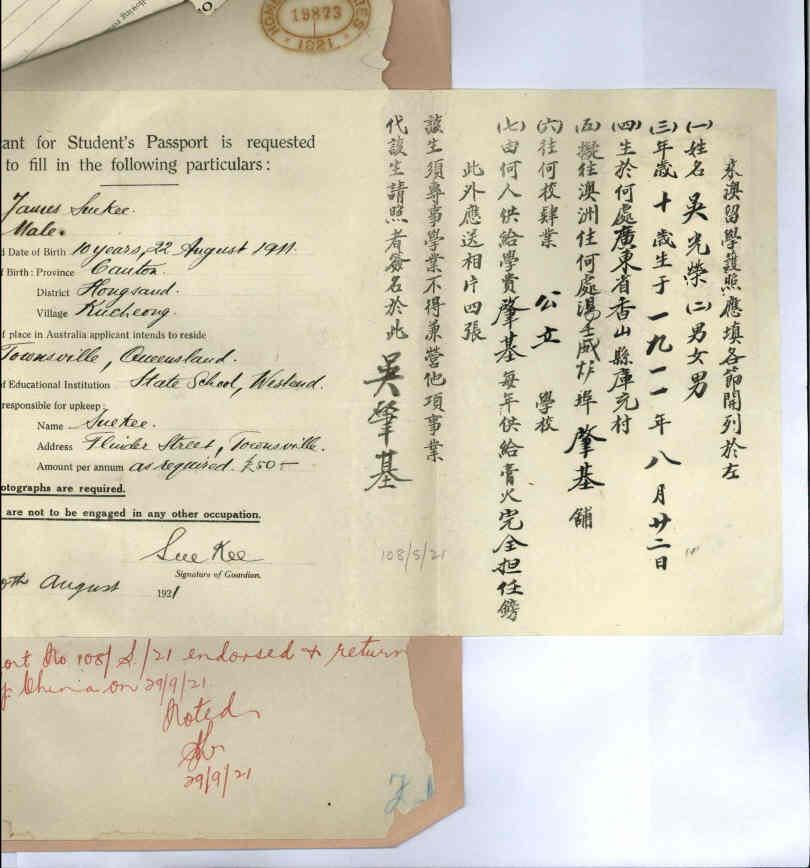 19873
1921
ant for Student's Passport is requested
to fill in the following particulars :
James Suekee.
Male.
d Date of Birth 10 years, 22 August 1911.
f Birth : Province Canton.
District Hongsand.
Village Kucheong.
f place in Australia applicant intends to reside
Townsville, Queensland.
of Educational Institution State School, Westend.
responsible for upkeep :
Name Suekee.
Address Flinder Street, Townsville.
Amount per annum as required. £50-
otographs are required.
are not to be engaged in any other occupation.
Sue Kee
Signature of Guardian.
August 1921
來澳留學護照應填各節開列於左
(一)姓名 吳光榮 (二)男女 男
(三)年歲 十 歲生于 一九一一 年 八 月 廿二 日
(四)生於何處 廣東省香山縣庫充村
(五)擬往澳洲住何處 湯士威炉 埠 肇基 舖
(六)往何校肄業 公立 學校
(七)由何人供給學費 肇基 每年供給膏火 完全担任 鎊
此外應送相片四張
該生須專事學業不得兼營他項事業
代該生請照者簽名於此 吳肇基
108/S/21
ort No 108/S./21 endorsed & return
China on 29/9/21.
Noted
29/9/21